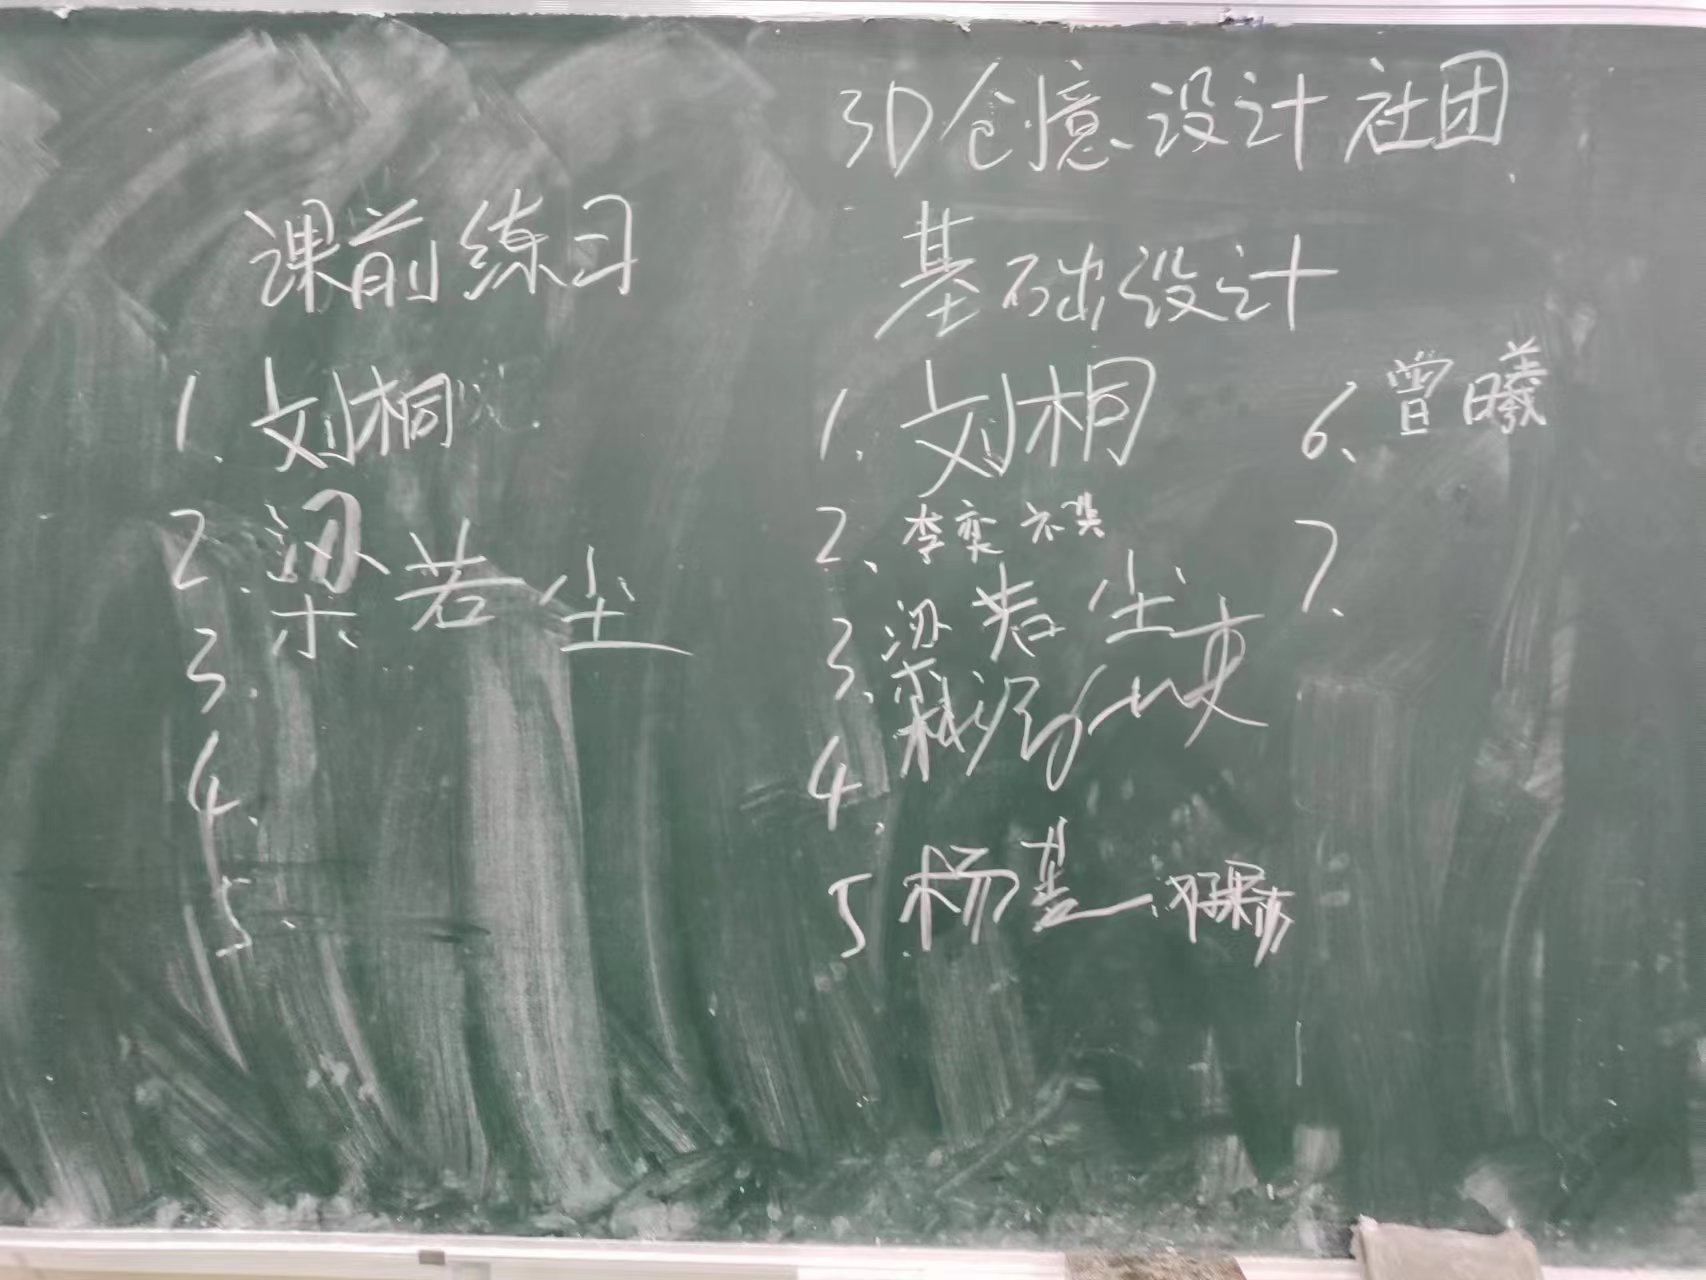 3D创意设计社团
课前练习
1. 刘桐
2. 梁若尘
3.
4.
5.
基础设计
1. 刘桐
2、李奕祺
3、梁若尘
4.
5 杨基
6、曾曦
7、